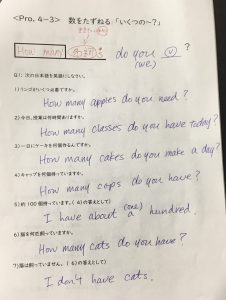 <Pro. 4-3> 数をたずねる「いくつの~?」
How many 名詞s do you (v) ?
(we)
Q1: 次の日本語を英訳しなさい。
1)リンゴがいくつ必要ですか。
How many apples do you need?
2)今日、授業は何時間ありますか。
How many classes do you have today?
3)一日にケーキを何個作るんですか。
How many cakes do you make a day?
4)キャップを何個持っていますか。
How many caps do you have?
5)約100個持っています。(4)の答えとして)
I have about a (one) hundred.
6)猫を何匹飼っていますか。
How many cats do you have?
7)猫は飼っていません。(6)の答えとして)
I don't have cats.